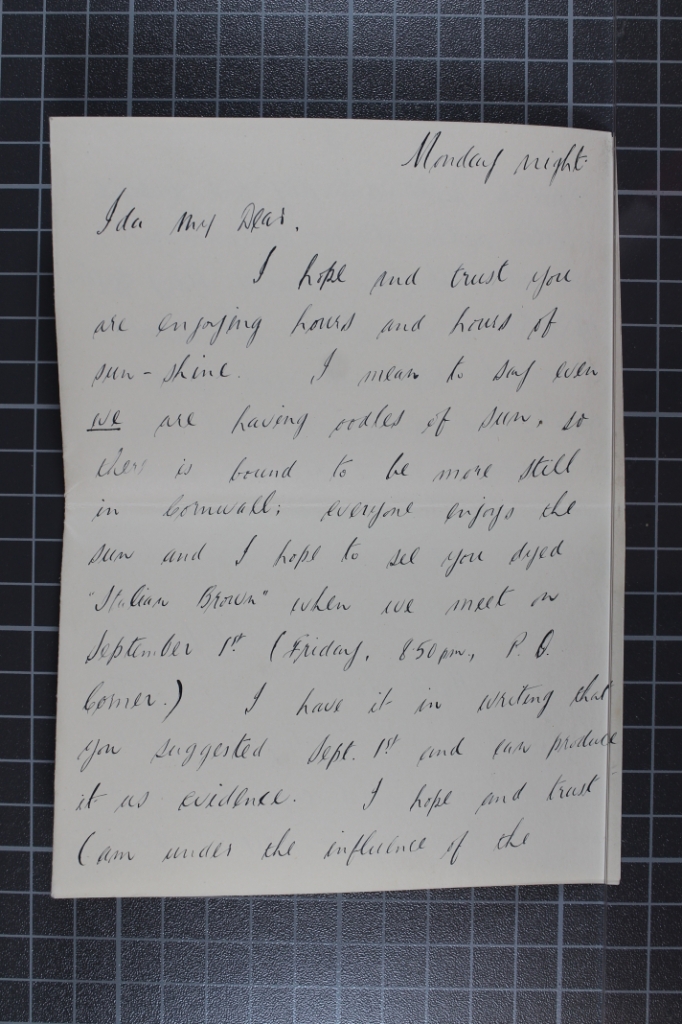 Monday night.
Ida my Dear,
I hope and trust you
are enjoying hours and hours of
sun-shine. I mean to say even
we are having oodles of sun, so
there is bound to be more still
in Cornwall; everyone enjoys the
sun and I hope to see you dyed
"Italian Brown" when we meet on
September 1st (Friday, 8.50 pm, P. O.
Corner.) I have it in writing that
you suggested Sept. 1st and can produce
it as evidence. I hope and trust
(am under the influence of the